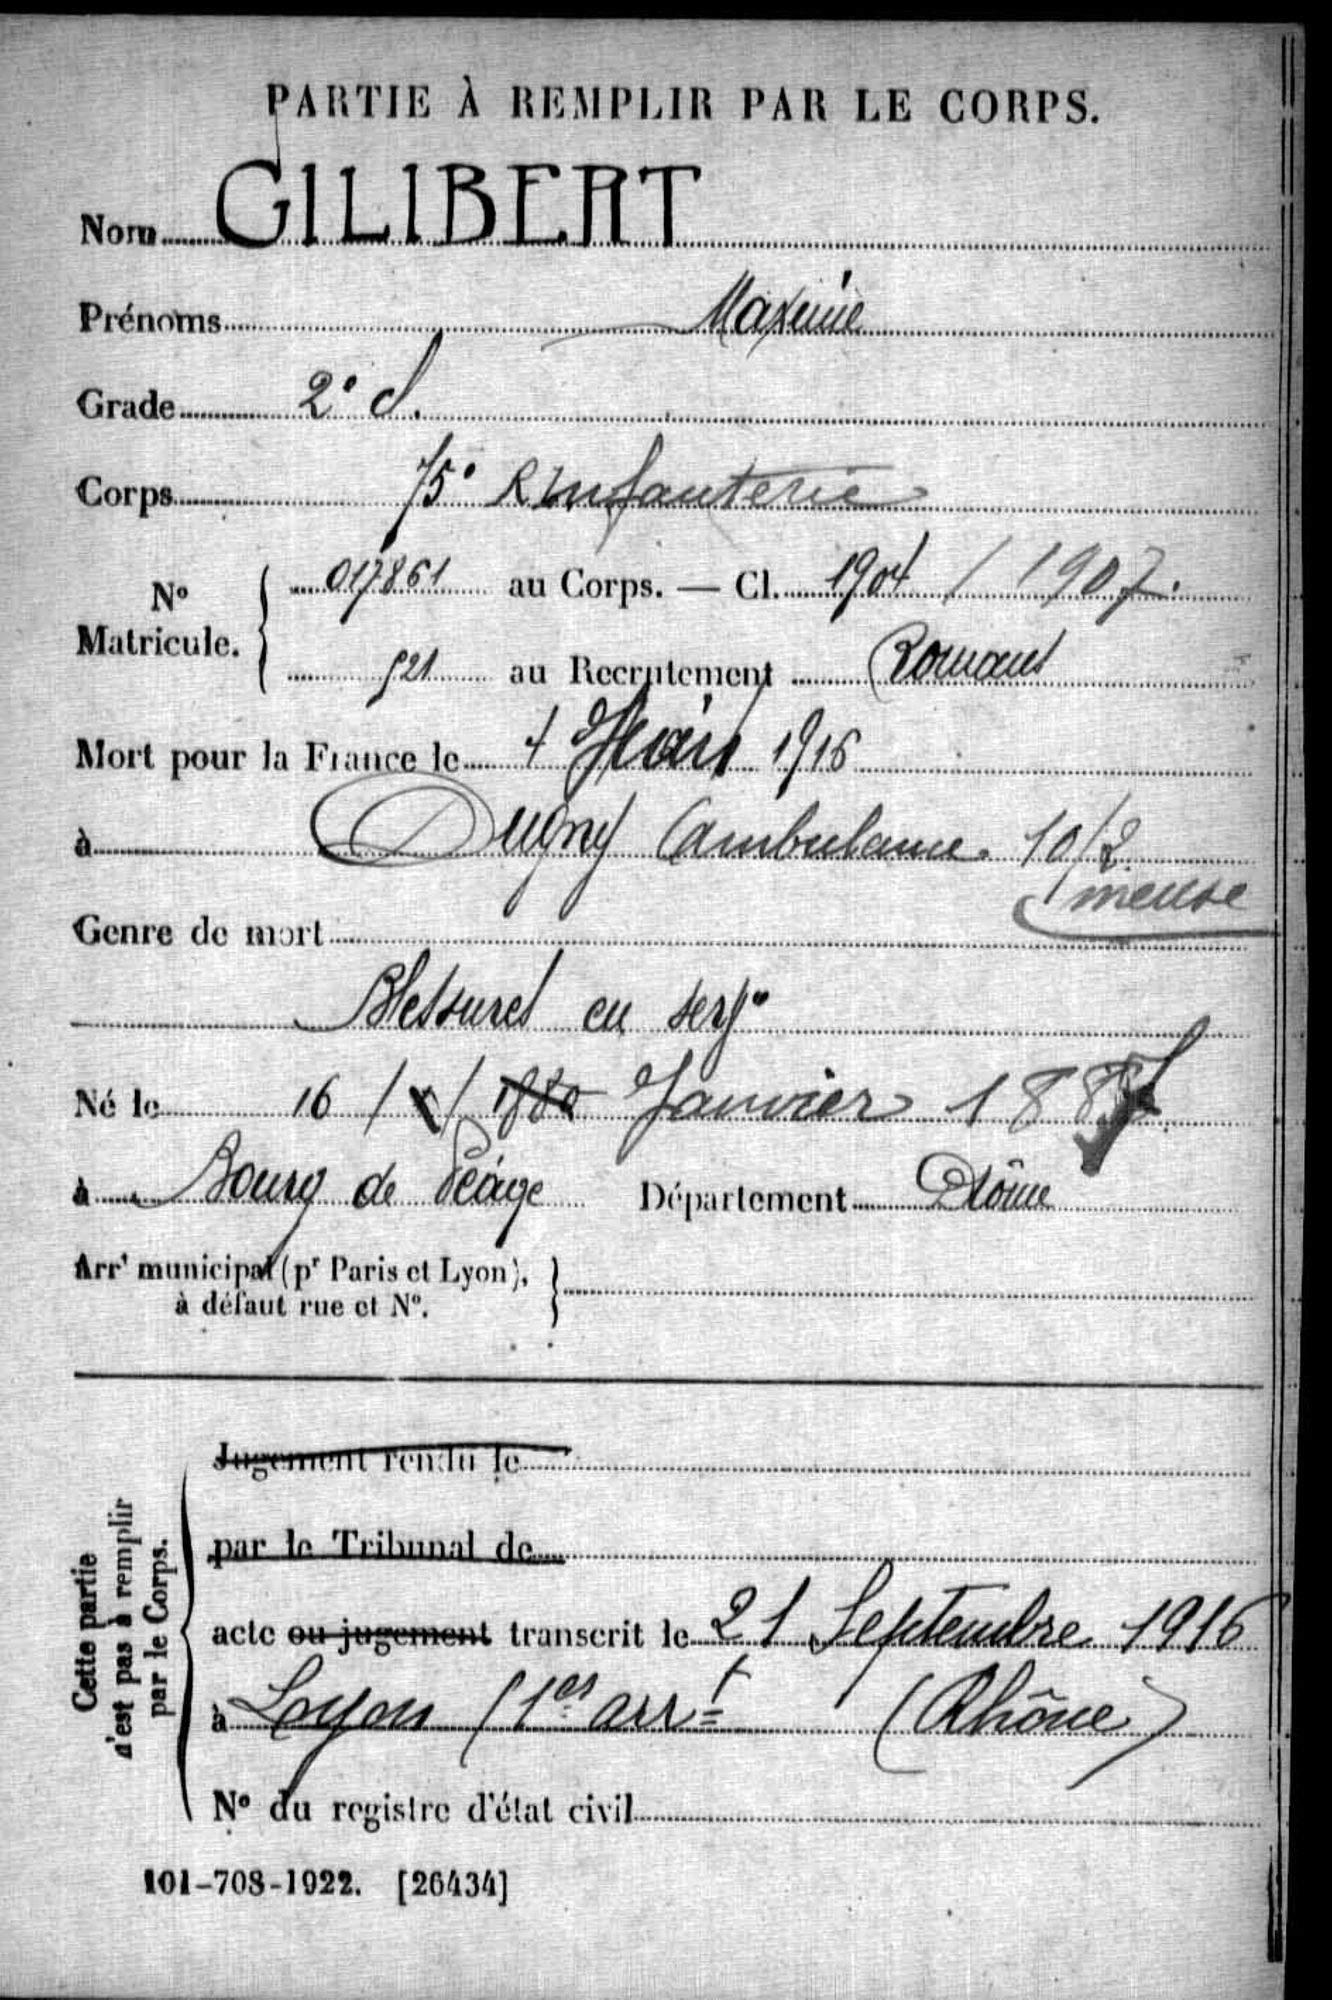 PARTIE À REMPLIR PAR LE CORPS.
Nom GILIBERT
Prénoms Maxime
Grade 2e cl.
Corps 75e R Infanterie
No Matricule. 017861 au Corps. — Cl. 1904 / 1907.
921 au Recrutement Romans
Mort pour la France le 4 Mars 1916
à Dugny Ambulance 10/2
meuse
Genre de mort
Blessures en serv
Né le 16 / / 1880 Janvier 1887
à Bourg de Péage Département Drôme
Arrt municipal (pr Paris et Lyon),
à défaut rue et No.
Cette partie
n'est pas à remplir
par le Corps.
Jugement rendu le
par le Tribunal de
acte ou jugement transcrit le 21 Septembre 1916
à Lyon (1er arrt (Rhône)
No du registre d'état civil
101-708-1922. [26434]